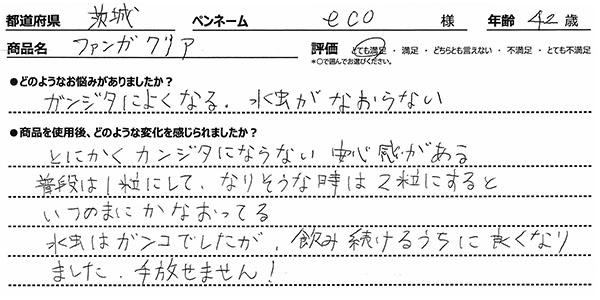 都道府県 茨城 ペンネーム eco 様 年齢 42 歳
商品名 ファンガクリア 評価 とても満足 ・ 満足 ・ どちらとも言えない ・ 不満足 ・ とても不満足
*○で囲んでお選びください。
●どのようなお悩みがありましたか?
ガンジタによくなる. 水虫がなおらない
●商品を使用後、どのような変化を感じられましたか?
とにかくカンジタにならない安心感がある
普段は1粒にして、なりそうな時は2粒にすると
いつのまにかなおってる
水虫はガンコでしたが、飲み続けるうちに良くなり
ました. 手放せません!